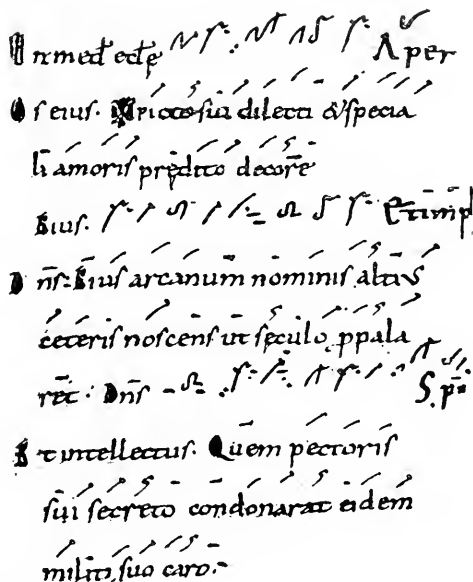 In med eclę Aper
Os eius. Xpicto sui dilecti & specia
li amoris prędito decore
Eius. Et impl
Dns. Eius arcanum nominis altius
ceteris noscens ut sęculo ppala
ret. Dns Sps
Et intellectus. Quem pectoris
sui secreto condonarat eidem
militi suo caro.